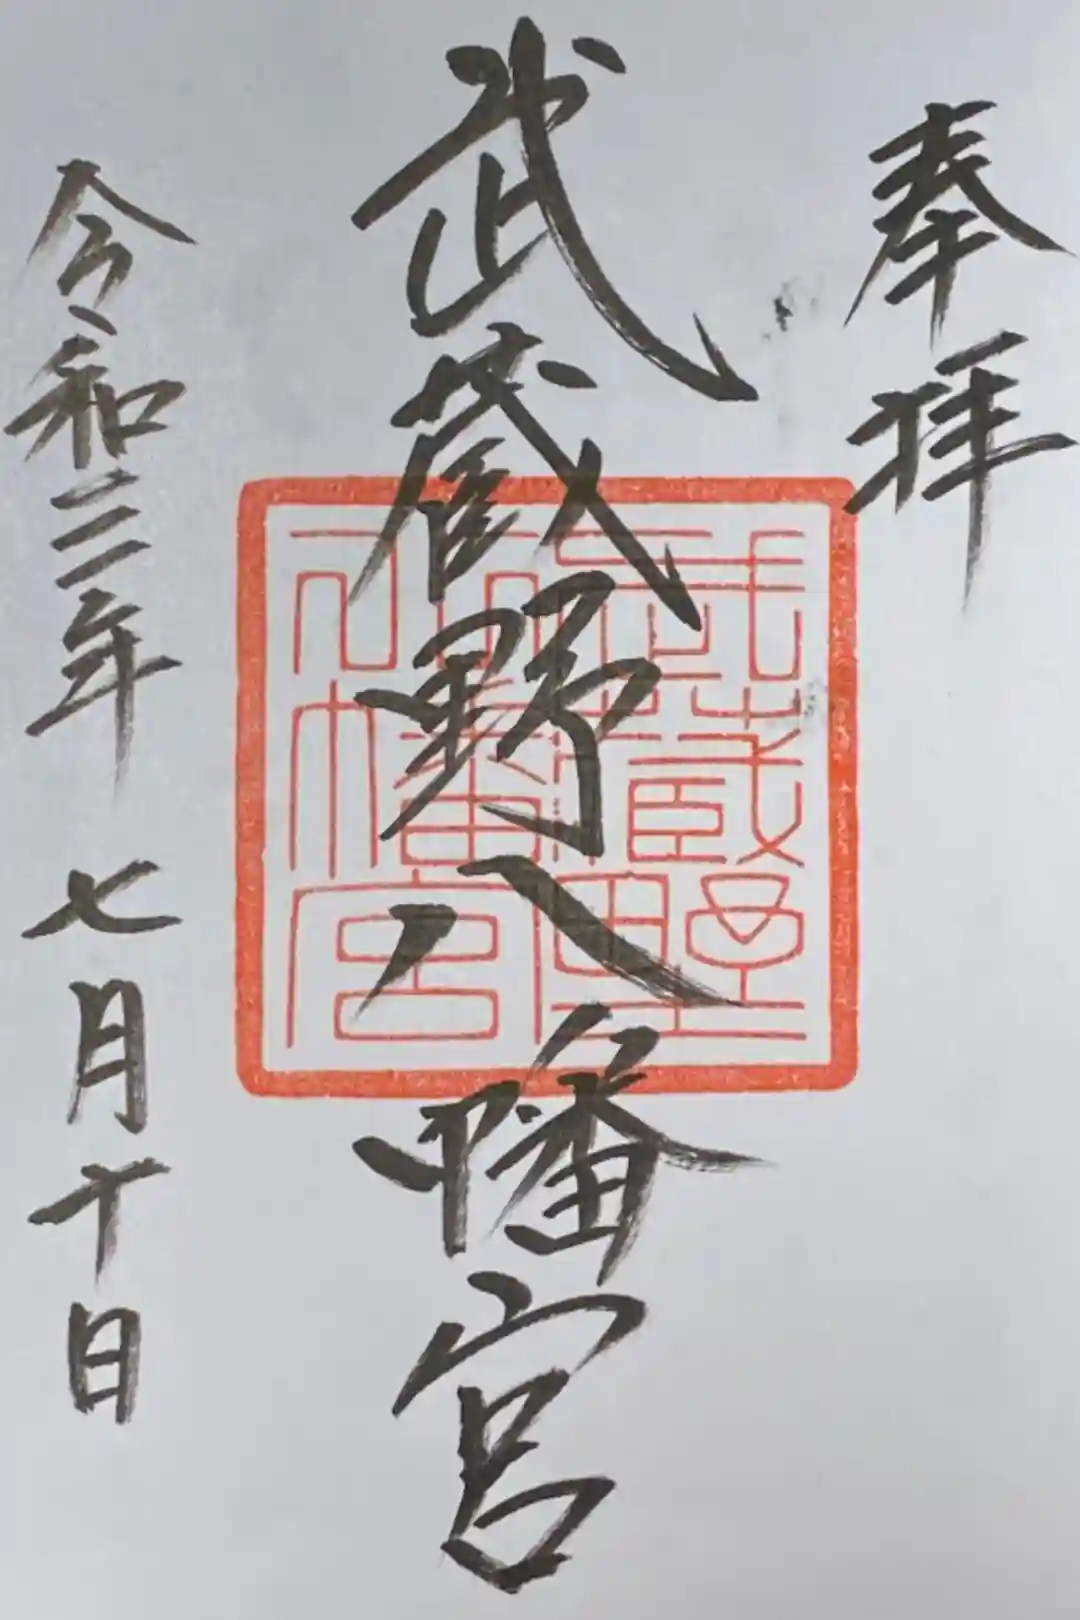 奉拝
武蔵野八幡宮
令和三年七月十日
武蔵野
八幡宮